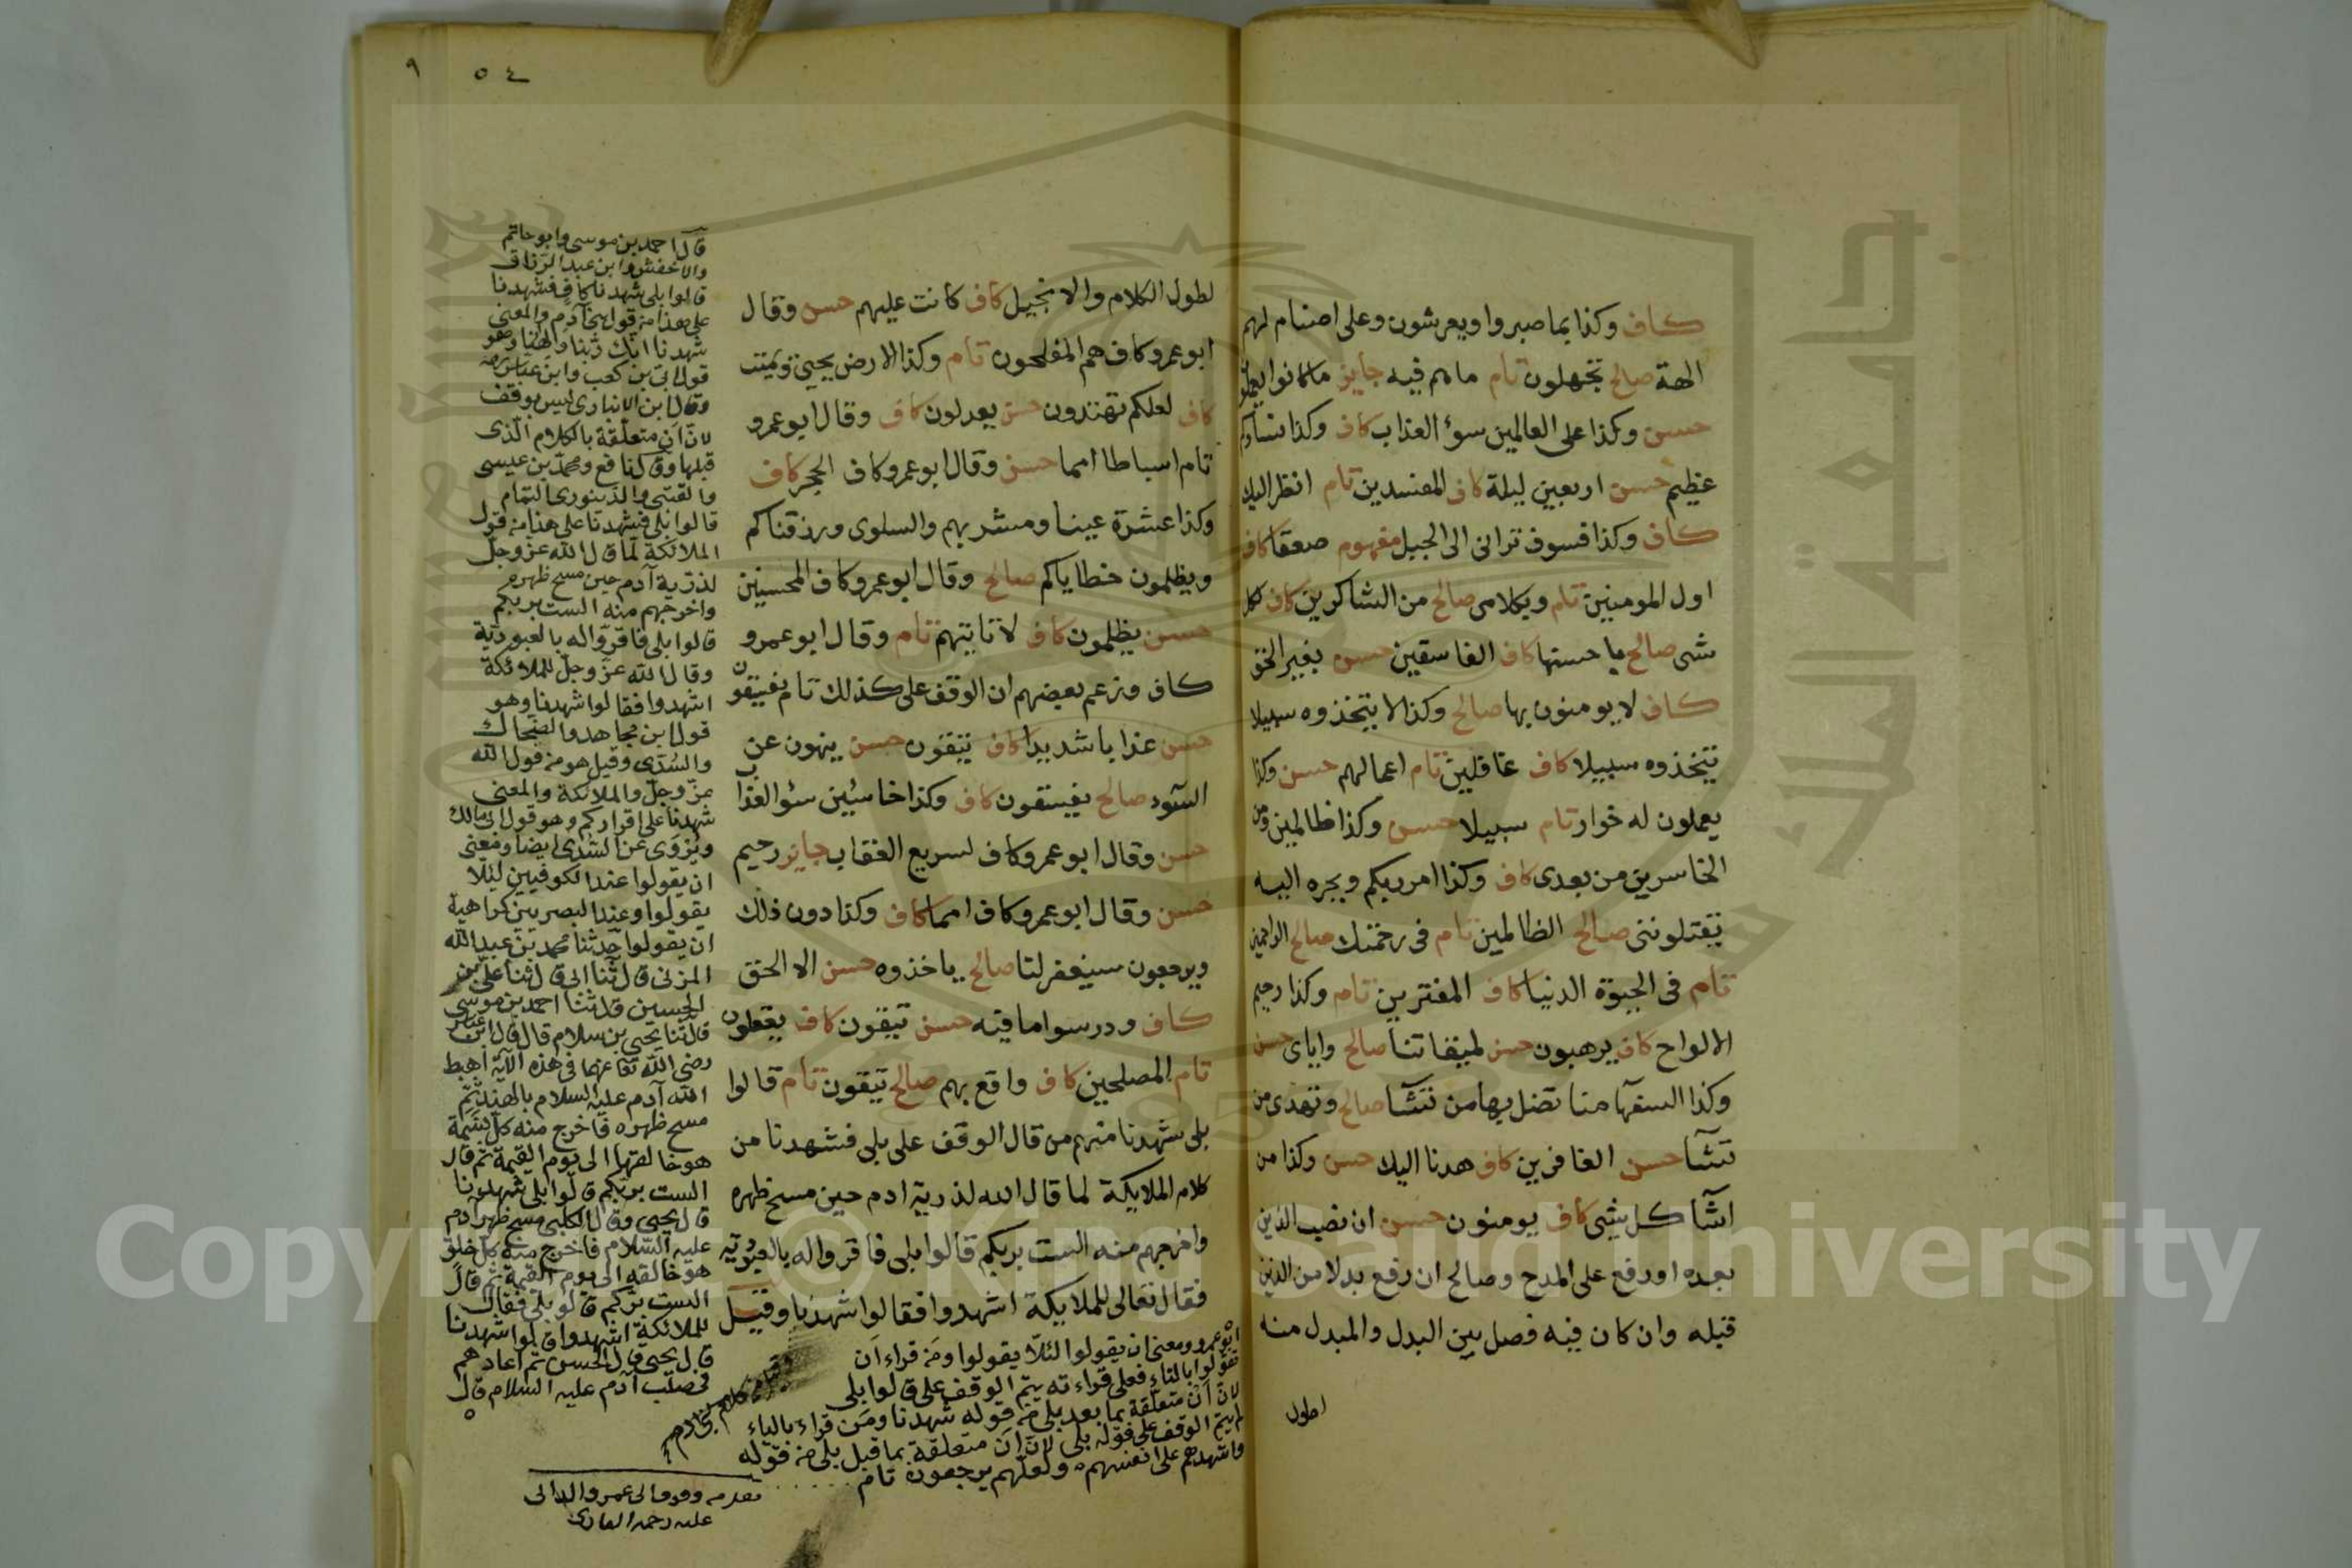 كاف وكذا بما صبروا ويعرشون وعلى اصنام لهم
الهة صالح تجهلون تام ما هم فيه جايز ما كانوا يعملون
حسن وكذا على العالمين سوٓ العذاب كاف وكذا نساكم
عظيم حسن اربعين ليلة كاف المفسدين تام انظر اليك
كاف وكذا فسوف تراني الى الجبل مفهوم صعقا كاف
اول المومنين تام وبكلامى صالح من الشاكرين كاف لكل
شى صالح باحسنها كاف الفاسقين حسن بغير الحق
كاف لا يومنون بها صالح وكذا لا يتخذوه سبيلا
يتخذوه سبيلا كاف غافلين تام اعمالهم حسن وكذا
يعملون له خوار تام سبيلا حسن وكذا ظالمين ومن
الخاسرين من بعدى كاف وكذا امر ربكم ويجره اليه
يقتلوننى صالح الظالمين تام فى رحمتك صالح الراحمين
تام فى الحيوة الدنيا كاف المفترين تام وكذا رحيم
الالواح كاف يرهبون حسن لميقاتنا صالح واياى حسن
وكذا السفهآ منا تضل بها من تشآ صالح وتهدى من
تشآ حسن الغافرين كاف هدنا اليك حسن وكذا من
اشآ كل شى كاف يومنون حسن ان نصب الذين
بعده او رفع على المدح وصالح ان رفع بدلا من الذين
قبله وان كان فيه فصل بين البدل والمبدل منه
لطول
٥٤ ٩
لطول الكلام والانجيل كاف كانت عليهم حسن وقال
ابو عمرو كاف هم المفلحون تام وكذا الارض يحيى ويميت
كاف لعلكم تهتدون حسن يعدلون كاف وقال ابو عمرو
تام اسباطا امما حسن وقال ابو عمرو كاف الحجر كاف
وكذا عشرة عينا ومشربهم والسلوى ورزقناكم
ويظلمون خطاياكم صالح وقال ابو عمرو كاف المحسنين
حسن يظلمون كاف لا تاتيهم تام وقال ابو عمرو
كاف وزعم بعضهم ان الوقف على كذلك تام يفسقون
حسن عذابا شديدا كاف يتقون حسن ينهون عن
السوٓء صالح يفسقون كاف وكذا خاسئين سوٓ العذاب
حسن وقال ابو عمرو كاف لسريع العقاب جايز رحيم
حسن وقال ابو عمرو كاف امما كاف وكذا دون ذلك
ويرجعون سيغفر لنا صالح ياخذوه حسن الا الحق
كاف ودرسوا ما فيه حسن يتقون كاف يعقلون
تام المصلحين كاف واقع بهم صالح تتقون تام قالوا
بلى شهدنا منهم من قال الوقف على بلى فشهدنا من
كلام الملايكة لما قال الله لذرية ادم حين مسح ظهره
واخرجهم منه الست بربكم قالوا بلى فاقروا له بالعبودية
فقال تعالى للملايكة اشهدوا فقالوا شهدنا وقيل
ابو عمرو ومعنى ان يقولوا لئلا يقولوا ومن قراء ان
تقولوا بالتاء فعلى قراءته يتم الوقف على قالوا بلى
لان ان متعلقة بما بعد بلى من قوله شهدنا ومن قراء بالياء
لم يتم الوقف على قوله بلى لان ان متعلقة بما قبل بلى من قوله
واشهدهم على انفسهم ولعلهم يرجعون تام
قال احمد بن موسى وابو حاتم
والاخفش وابن عبد الرزاق
قالوا بلى شهدنا كاف فشهدنا
على هذا من قول بنى آدم والمعنى
شهدنا انك ربنا والهنا وهو
قول ابى بن كعب وابن عباس
وقال ابن الانبارى ليس بوقف
لان ان متعلقة بالكلام الذى
قبلها وقال نافع ومحمد بن عيسى
والقتبى والدينورى التمام
قالوا بلى فشهدنا على هذا من قول
الملائكة لما قال الله عز وجل
لذرية آدم حين مسح ظهره
واخرجهم منه الست بربكم
قالوا بلى فاقروا له بالعبودية
وقال الله عز وجل للملائكة
اشهدوا فقالوا شهدنا وهو
قول ابن مجاهد والضحاك
والسدى وقيل هو من قول الله
عز وجل والملائكة والمعنى
شهدنا على اقراركم وهو قول ابى مالك
ويروى عن السدى ايضا ومعنى
ان يقولوا عند الكوفيين لئلا
يقولوا وعند البصريين كراهية
ان يقولوا حدثنا محمد بن عبد الله
المزنى قال ثنا ابى قال ثنا على بن
الحسين قال ثنا احمد بن موسى
قال ثنا يحيى بن سلام قال قال ابن عباس
رضى الله تعا عنهما فى هذه الآية اهبط
الله آدم عليه السلام بالهند ثم
مسح ظهره فاخرج منه كل نسمة
هو خالقها الى يوم القيمة ثم قال
الست بربكم قالوا بلى شهدنا
قال يحيى وقال الكلبى مسح ظهر آدم
عليه السلام فاخرج منه كل خلق
هو خالقه الى يوم القيمة ثم قال
الست بربكم قالوا بلى فقال
للملائكة اشهدوا قالوا شهدنا
قال يحيى قال الحسن ثم اعادهم
فى صلب آدم عليه السلام قال
عليه رحمة البارى